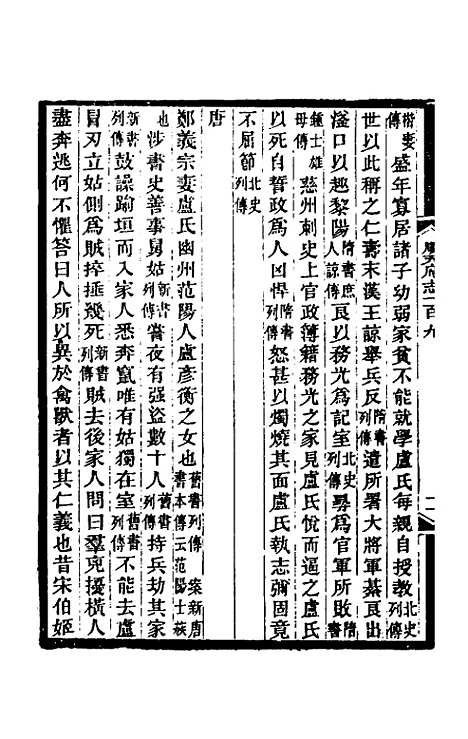 順天府志一百九
傳盛年寡居諸子幼弱家貧不能就學盧氏每親自授教北史列傳
世以此稱之仁壽末漢王諒舉兵反隋書列傳遣所署大將軍綦良出
滏口以趣黎陽隋書庶人諒傳良以務光爲記室北史列傳爲官軍所敗隋書
鍾士雄母傳慈州刺史上官政簿籍務光之家見盧氏悅而逼之盧氏
以死自誓政爲人凶悍隋書列傳怒甚以燭燒其面盧氏執志彌固竟
不屈節北史列傳
唐
鄭義宗妻盧氏幽州范陽人盧彥衡之女也舊書列傳案新唐書本傳云范陽士族
也涉書史善事舅姑新書列傳嘗夜有强盜數十人舊書列傳持兵劫其家
新書列傳鼓譟踰垣而入家人悉奔竄唯有姑獨在室舊書列傳不能去盧
冒刃立姑側爲賊捽捶幾死新書列傳賊去後家人問曰羣兇擾橫人
盡奔逃何不懼答曰人所以異於禽獸者以其仁義也昔宋伯姬